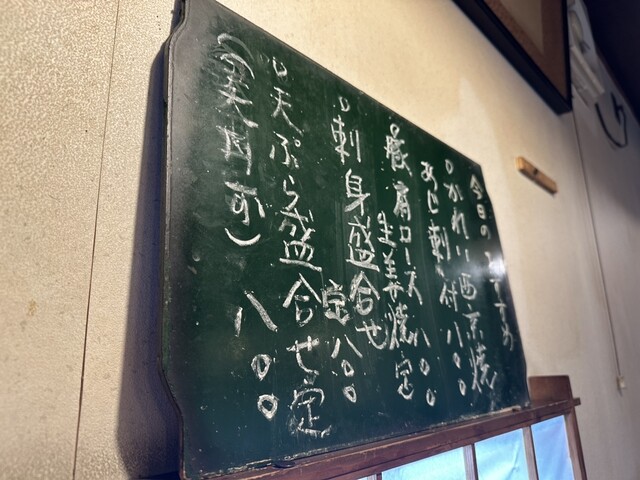 今日のおすすめ
○かれい西京焼
あじ刺付 八〇〇
○豚肩ロース
生姜焼定 八〇〇
○刺身盛合せ
定八〇〇
○天ぷら盛合せ定
八〇〇